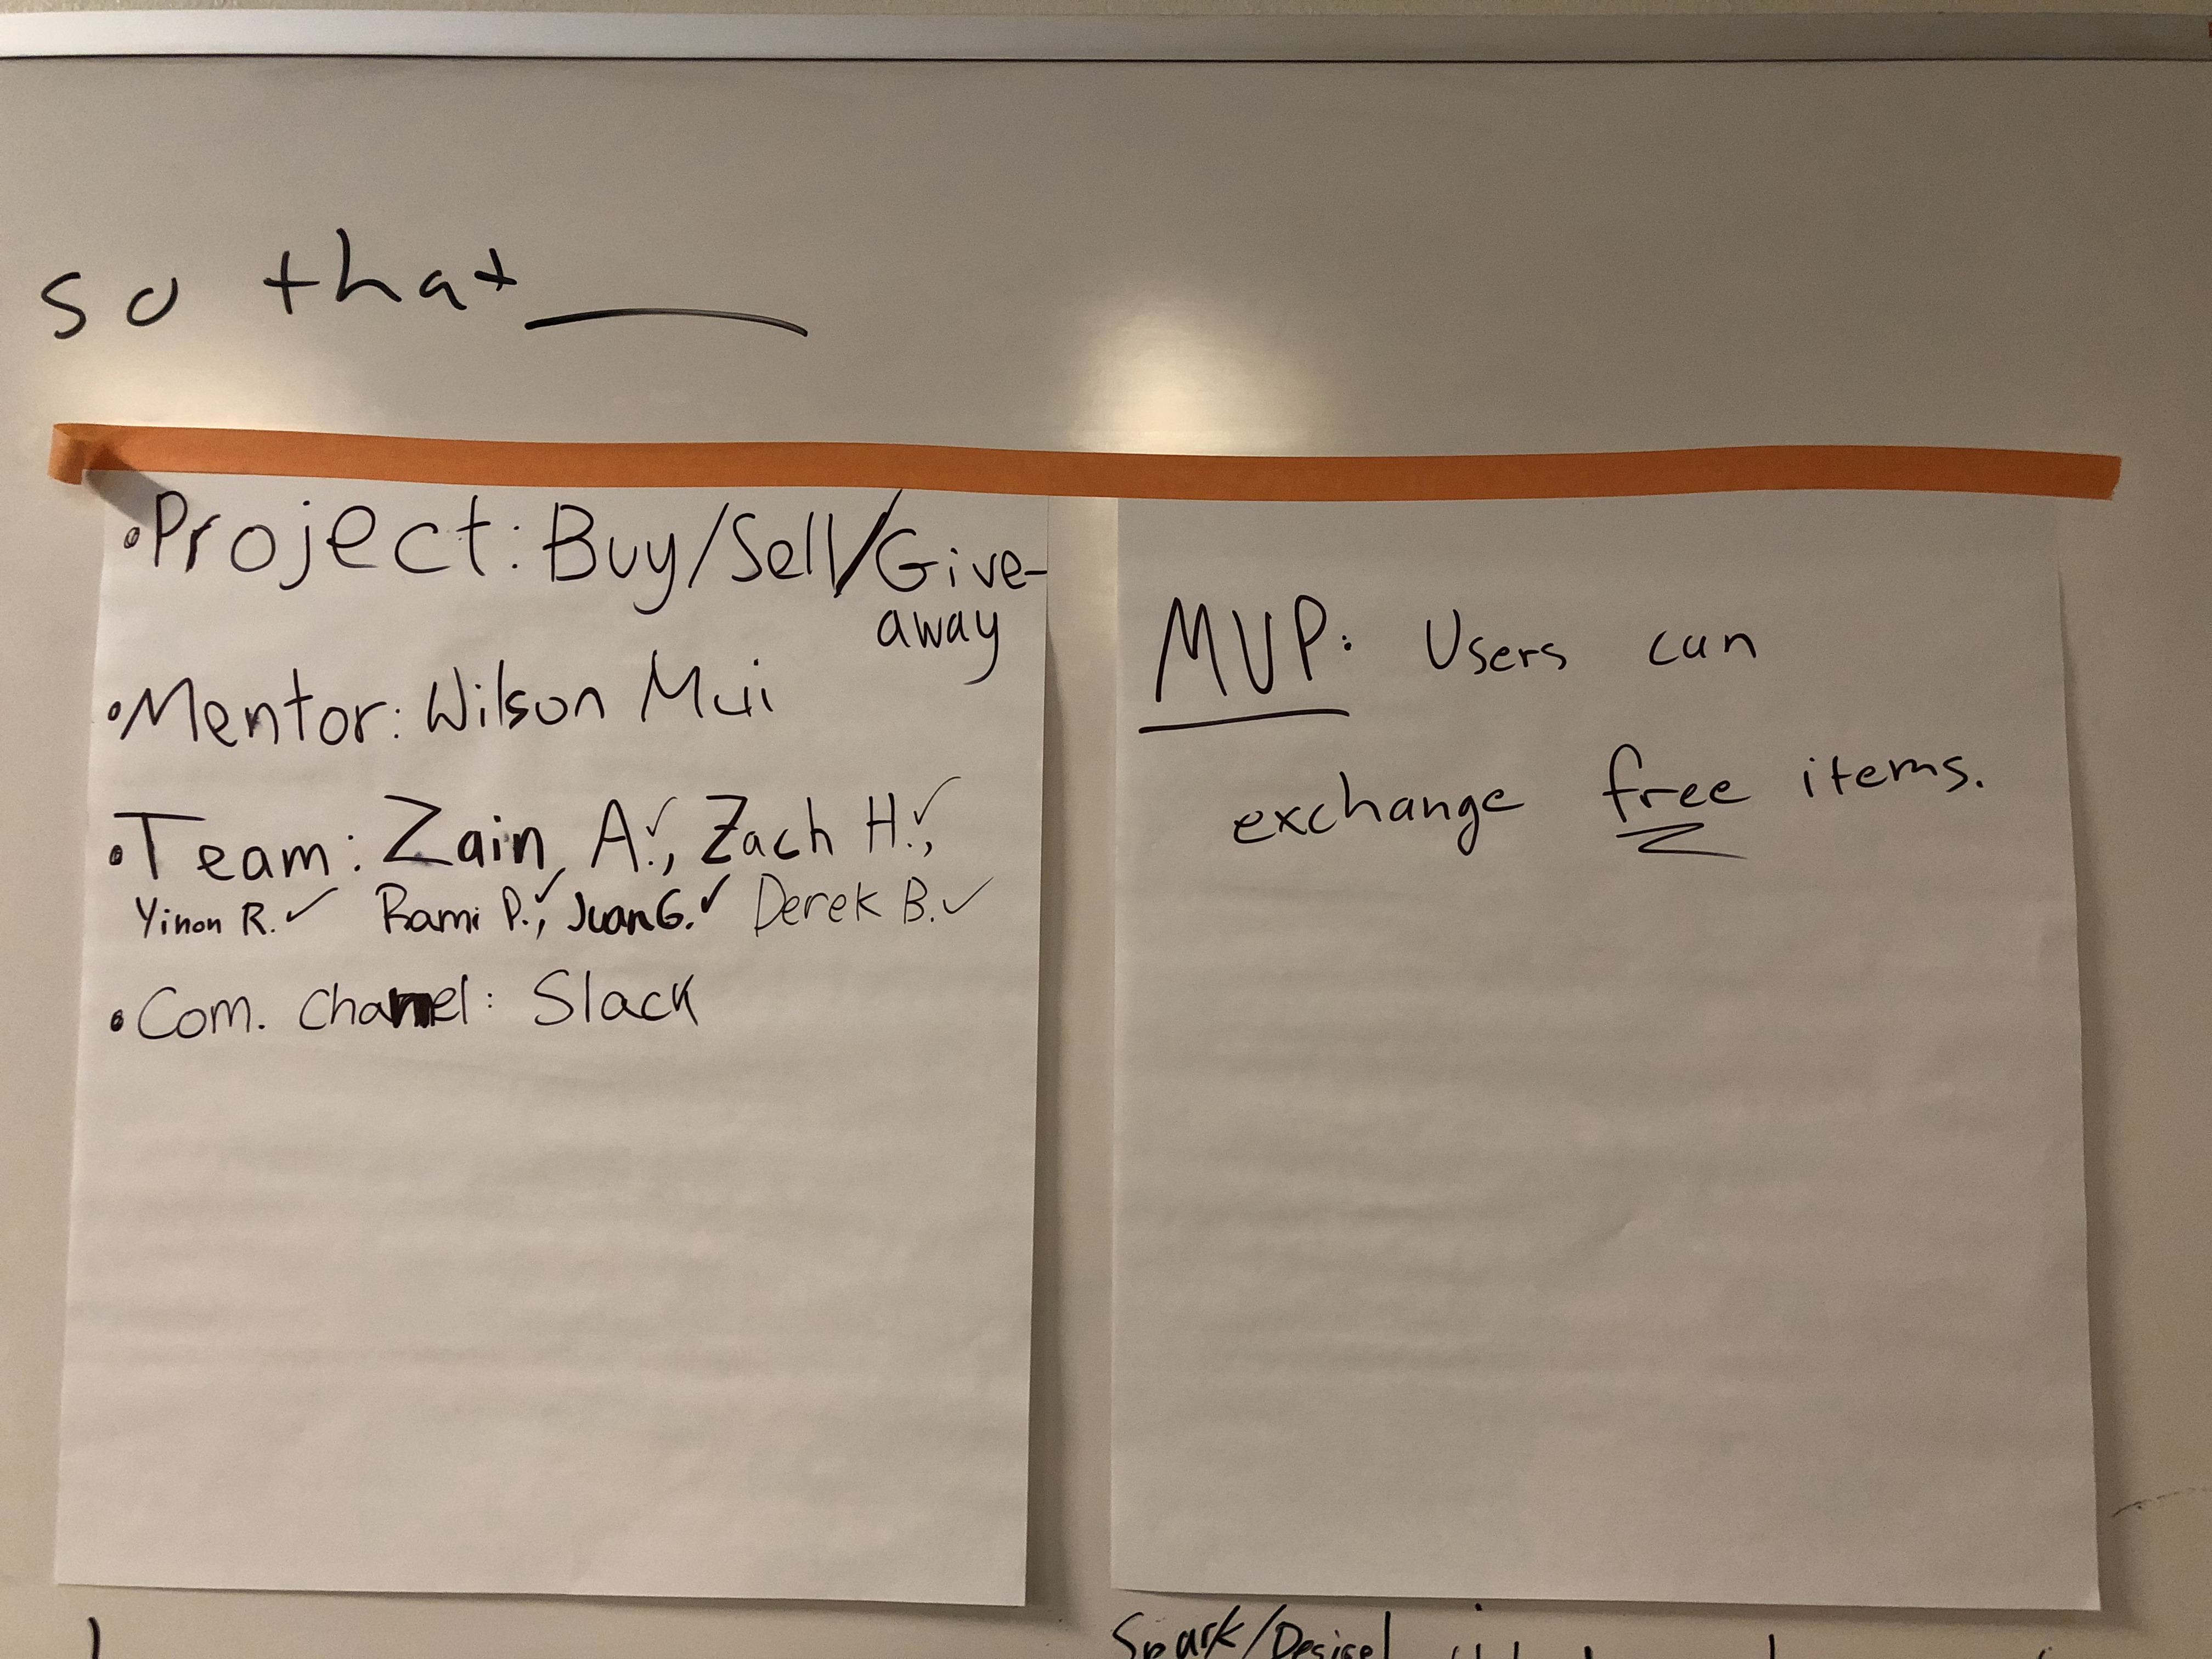 so that____
• Project: Buy/Sell/Give-
away
• Mentor: Wilson Mui
• Team: Zain A.✓, Zach H.✓,
Yinon R.✓ Rami P.✓, Juan G.✓ Derek B.✓
• Com. Channel: Slack
MVP: Users can
exchange free items.
Spark/Desire/